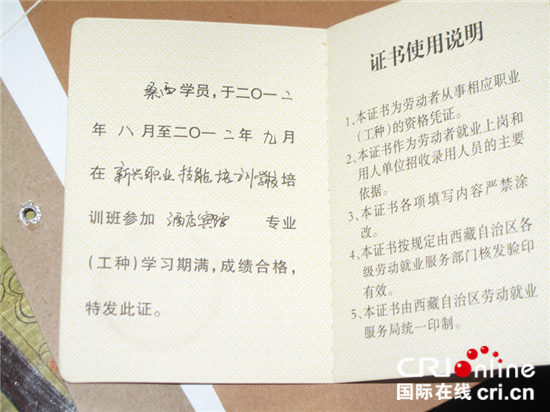 桑西学员，于二〇一二
年八月至二〇一二年九月
在新兴职业技能培训学校培
训班参加 酒店宾馆 专业
(工种)学习期满，成绩合格，
特发此证。
证书使用说明
1、本证书为劳动者从事相应职业
(工种)的资格凭证。
2、本证书作为劳动者就业上岗和
用人单位招收录用人员的主要
依据。
3、本证书各项填写内容严禁涂
改。
4、本证书按规定由西藏自治区各
级劳动就业服务部门核发验印
有效。
5、本证书由西藏自治区劳动就业
服务局统一印制。
CRI Online
国际在线 cri.cn